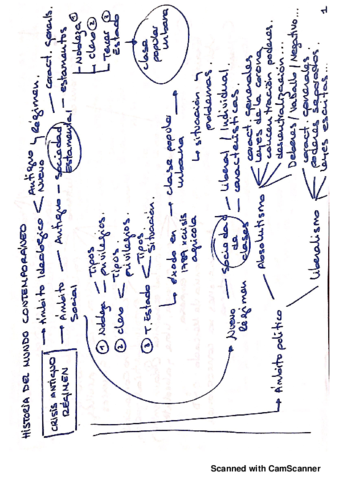 HISTORIA DEL MUNDO CONTEMPORÁNEO
CRISIS ANTIGUO RÉGIMEN
Ámbito Ideológico
Antiguo y Régimen.
Nuevo
Ámbito Social
Antiguo - Sociedad Estamental
caract. gnrals.
estamentos
Nobleza ①
clero ②
Tercer ③ Estado
① Nobleza = Tipos privilegios.
② clero < Tipos. privilegios.
③ T. Estado < Tipos situación.
éxodo en 1789 x crisis agrícola
clase popular urbana
clase popular urbana
situación y problemas.
Nuevo Régimen
sociedad de clases
Liberal / Individual.
características.
Ámbito político
Absolutismo
caract generales
leyes de la corona
concentración poderes.
descentralización...
Deberes/Vasallo/Negativo...
Liberalismo
caract generales
poderes separados.
leyes escritas...
1
Scanned with CamScanner